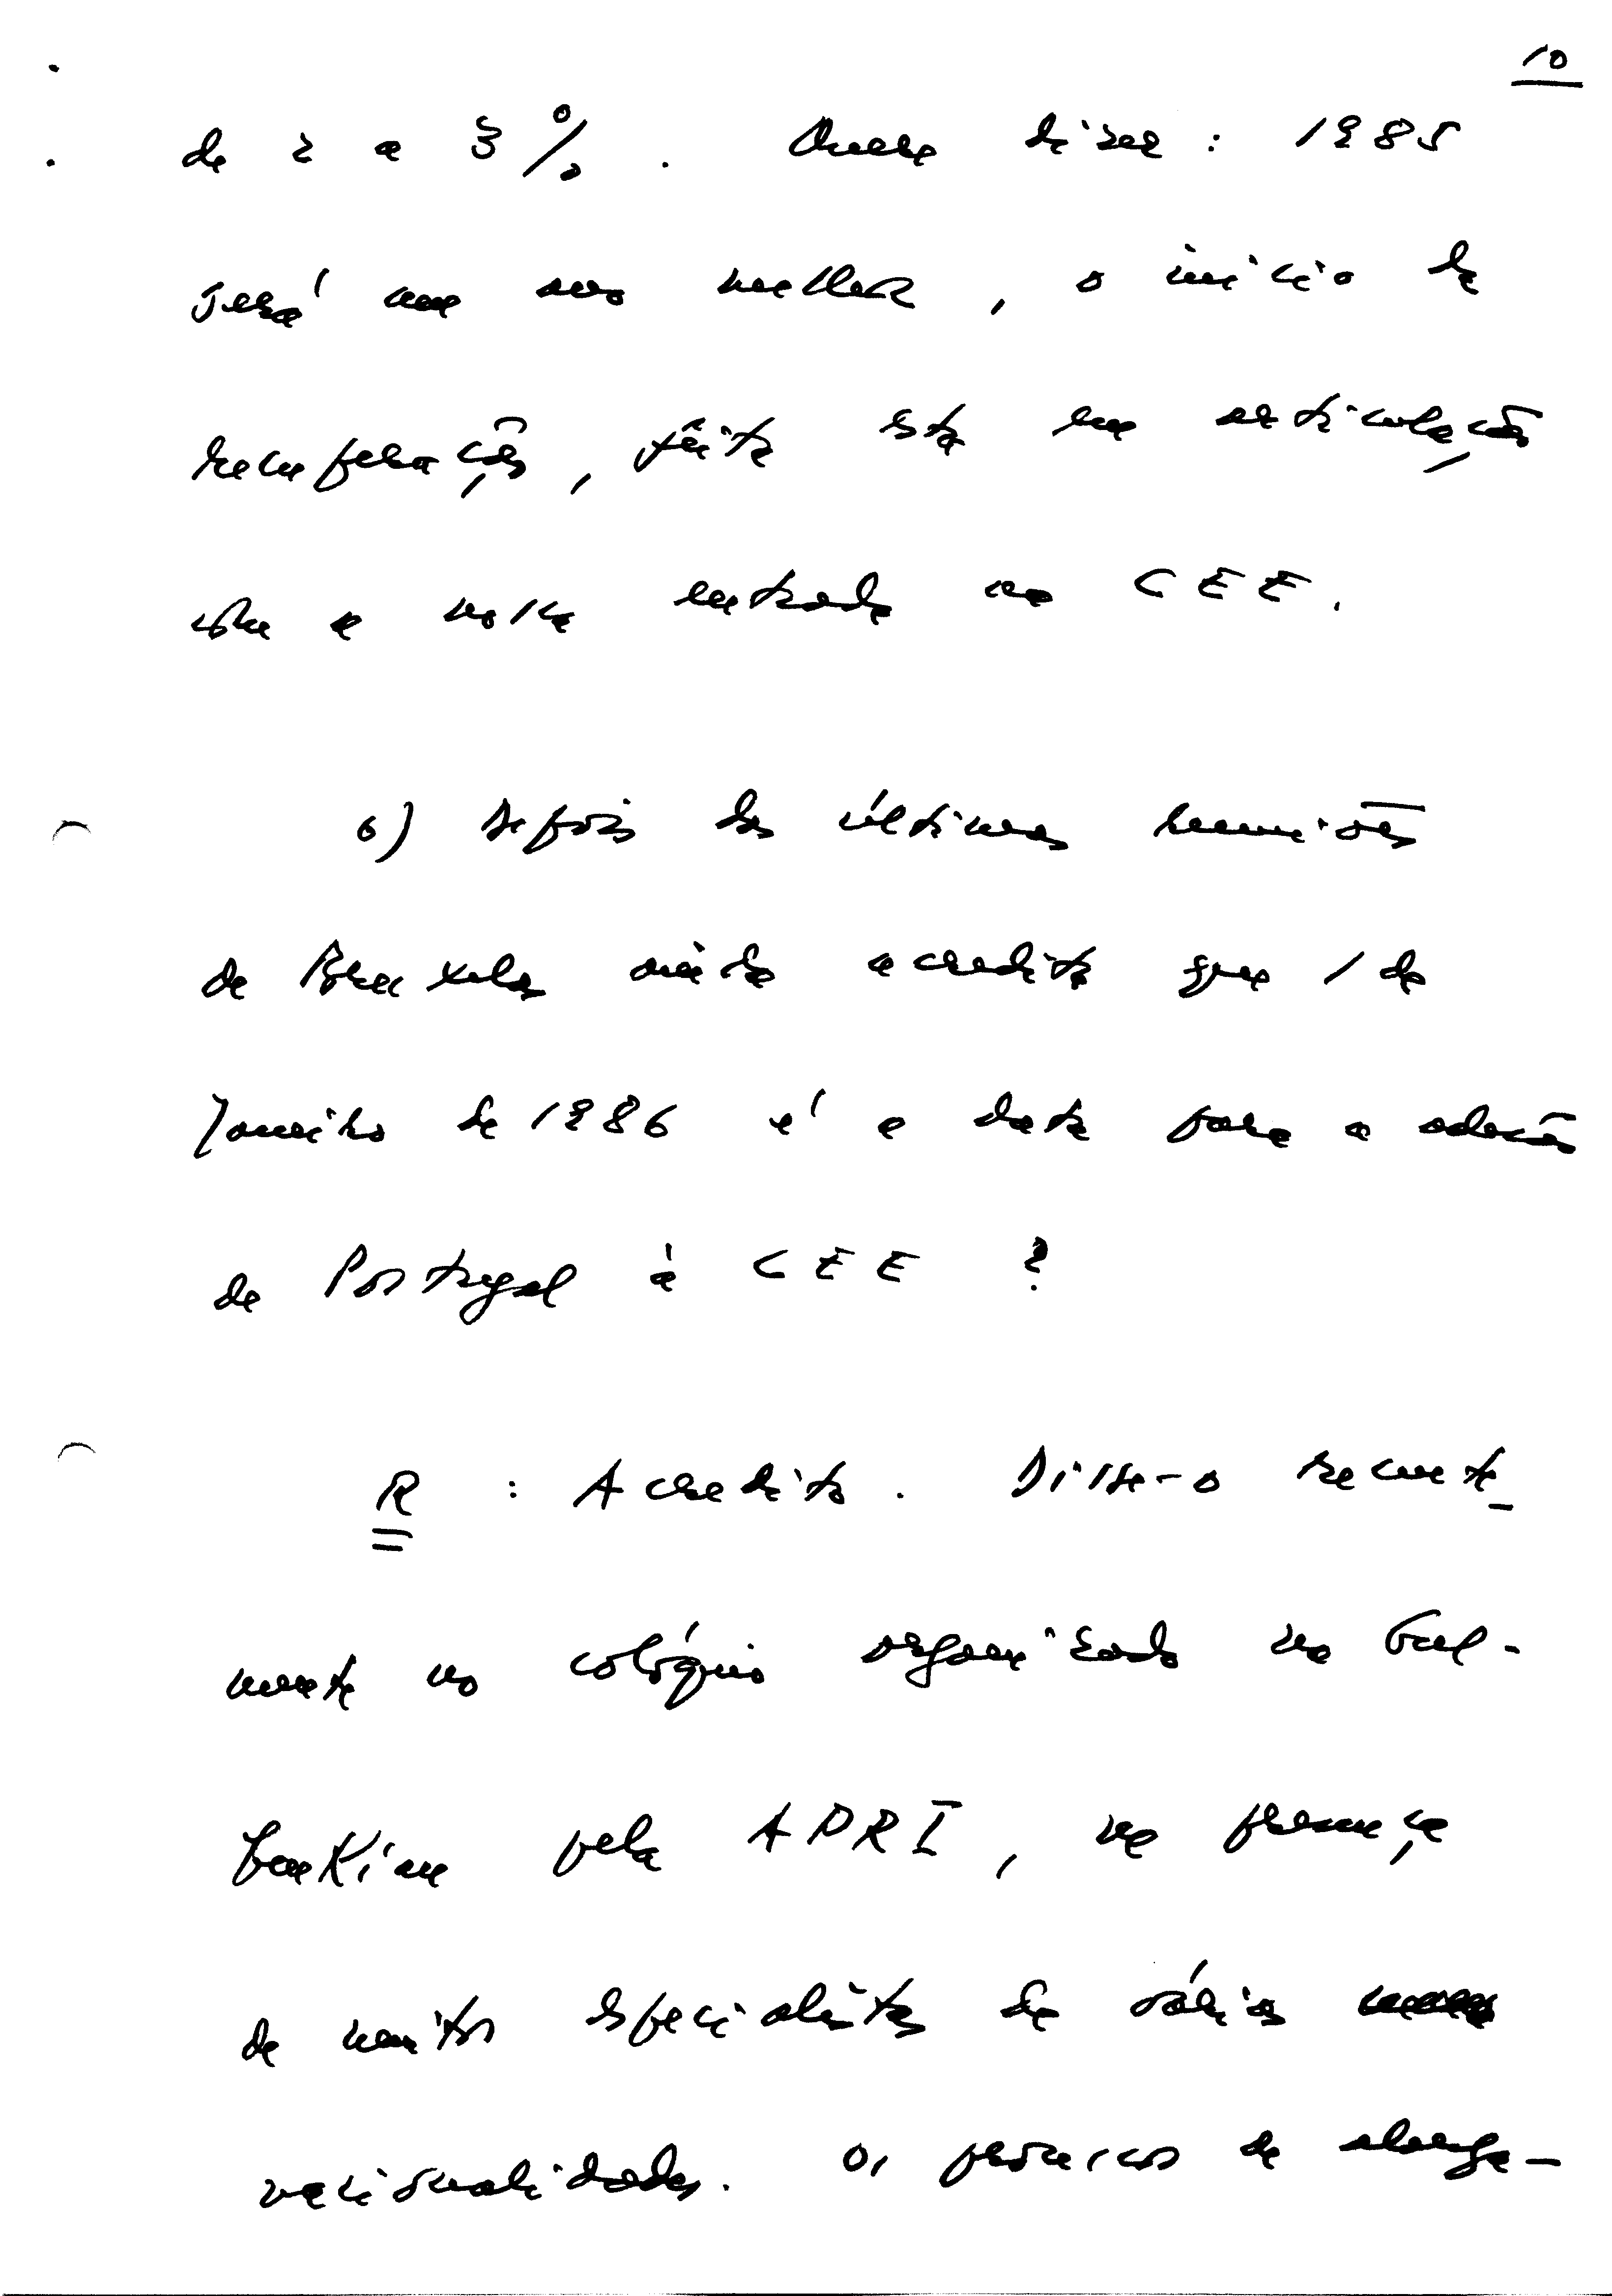 10
de 2 a 3%. Quere dizer: 1985
será um ano melhor, o início da
recuperação, feita esta em articulação
com a nossa entrada na CEE.
6) Depois das últimas reuniões
de Bruxelas ainda acredita que 1 de
Janeiro de 1986 é a data para a adesão
de Portugal à CEE?
R: Acredito. Disse-o recente-
mente no colóquio organizado na Gul-
benkian pela APRI, na presença
de muitos especialistas de várias
nacionalidades. Os processos de alarga-